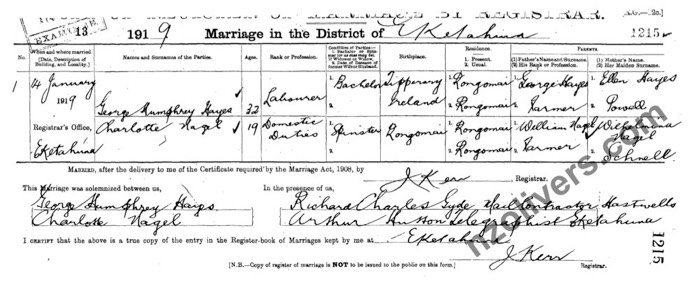 MARRIAGE BY REGISTRAR.
EXAMINED
13. 1919 Marriage in the District of Eketahuna 1215
No. When and where married. [Date, Description of Building, and Locality.] Names and Surnames of the Parties. Ages. Rank or Profession. Condition of Parties: Birthplace. Residence: 1. Present. 2. Usual. PARENTS. (1) Father's Name and Surname. (2) His Rank or Profession. (1) Mother's Name (2) Her Maiden Surname.
1 14 January 1919 George Humphrey Hayes 32 Labourer 1. Bachelor 2. Tipperary Ireland 1. Rongomai 2. Rongomai 1. George Hayes 2. Farmer 1. Ellen Hayes 2. Powell
Registrar's Office, Eketahuna Charlotte Nagel 19 Domestic Duties 1. Spinster 2. Rongomai 1. Rongomai 2. Rongomai 1. William Nagel 2. Farmer Nagel 2. Schnell
MARRIED, after the delivery to me of the Certificate required by the Marriage Act, 1908, by
J Kerr Registrar.
This Marriage was solemnized between us, In the presence of us,
George Humphrey Hayes Richard Charles Gyde Mail Contractor Hastwells
Charlotte Nagel Arthur Hutton Telegraphist Eketahuna
I CERTIFY that the above is a true copy of the entry in the Register-book of Marriages kept by me at Eketahuna
J Kerr
Registrar.
[N.B.—Copy of register of marriage is NOT to be issued to the public on this form.]
1215
nzolivers.com